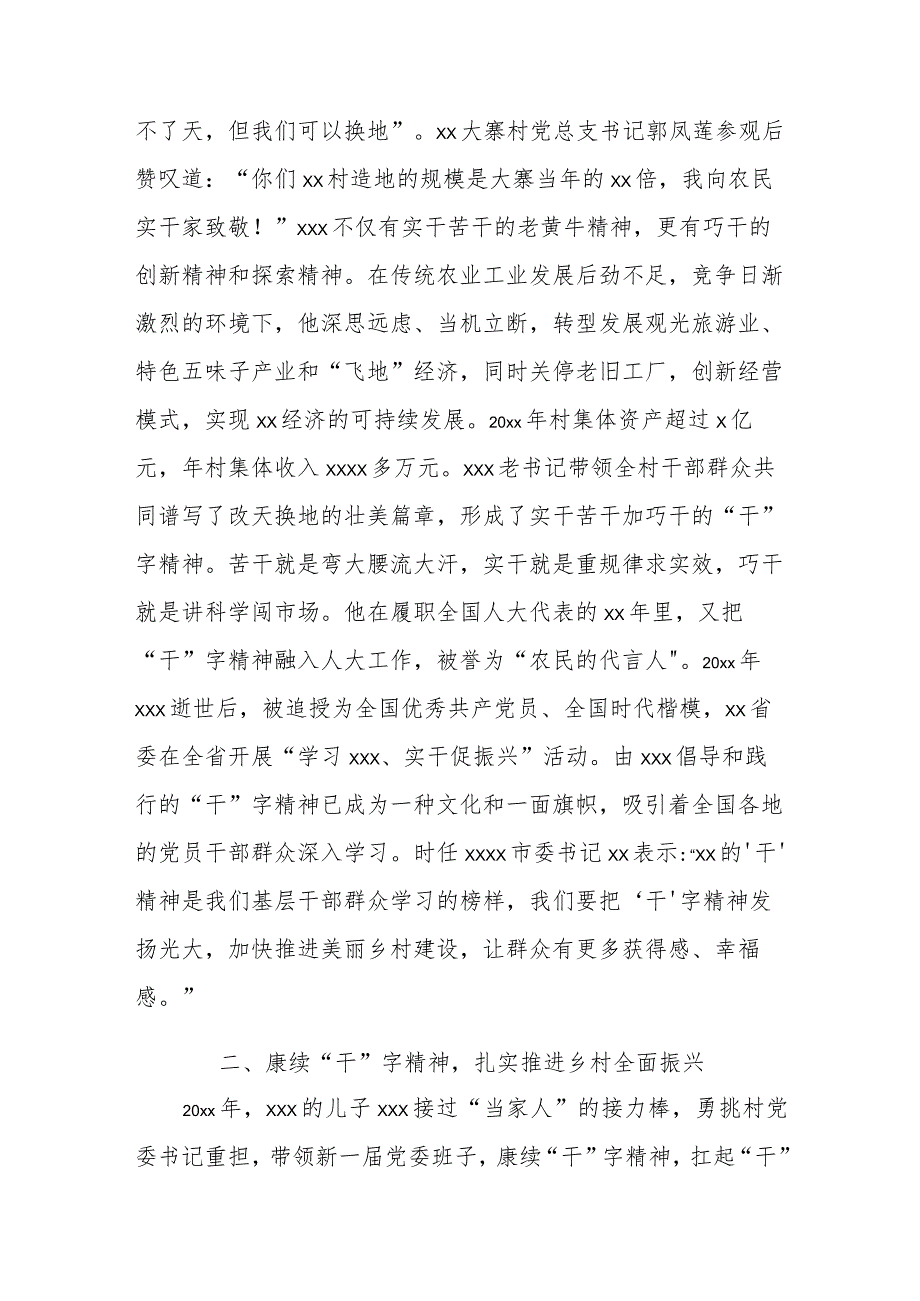 不了天，但我们可以换地”。xx大寨村党总支书记郭凤莲参观后
赞叹道：“你们xx村造地的规模是大寨当年的xx倍，我向农民
实干家致敬！”xxx不仅有实干苦干的老黄牛精神，更有巧干的
创新精神和探索精神。在传统农业工业发展后劲不足，竞争日渐
激烈的环境下，他深思远虑、当机立断，转型发展观光旅游业、
特色五味子产业和“飞地”经济，同时关停老旧工厂，创新经营
模式，实现xx经济的可持续发展。20xx年村集体资产超过x亿
元，年村集体收入xxxx多万元。xxx老书记带领全村干部群众共
同谱写了改天换地的壮美篇章，形成了实干苦干加巧干的“干”
字精神。苦干就是弯大腰流大汗，实干就是重规律求实效，巧干
就是讲科学闯市场。他在履职全国人大代表的xx年里，又把
“干”字精神融入人大工作，被誉为“农民的代言人"。20xx年
xxx逝世后，被追授为全国优秀共产党员、全国时代楷模，xx省
委在全省开展“学习xxx、实干促振兴”活动。由xxx倡导和践
行的“干”字精神已成为一种文化和一面旗帜，吸引着全国各地
的党员干部群众深入学习。时任xxxx市委书记xx表示:“xx的'干'
精神是我们基层干部群众学习的榜样，我们要把‘干'字精神发
扬光大，加快推进美丽乡村建设，让群众有更多获得感、幸福
感。”
二、康续“干”字精神，扎实推进乡村全面振兴
20xx年，xxx的儿子xxx接过“当家人”的接力棒，勇挑村党
委书记重担，带领新一届党委班子，康续“干”字精神，扛起“干”